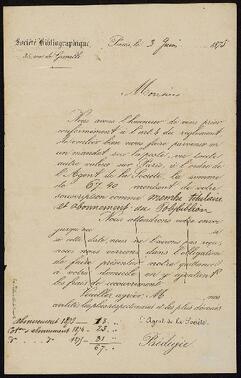 Société Bibliographique
35, rue de Grenelle
Paris, le 3 Juin 1875
Monsieur
Nous avons l'honneur de vous prier
conformément à l'art. 4 du règlement
de vouloir bien nous faire parvenir en
un mandat sur la poste, ou toute
autre valeur sur Paris, à l'ordre de
l'Agent de la Société la somme
de 67,40 montant de votre
souscription comme membre titulaire
et abonnement au Polybiblion
Nous attendrons votre envoi
jusqu'au
à cette date, nous ne l'avons pas reçu,
nous nous verrons dans l'obligation
de faire présenter notre quittance
à votre domicile en y ajoutant
les frais de recouvrement
Veuillez agréer, M
L'Agent de la Société
abonnement 1873
abonnement 1874